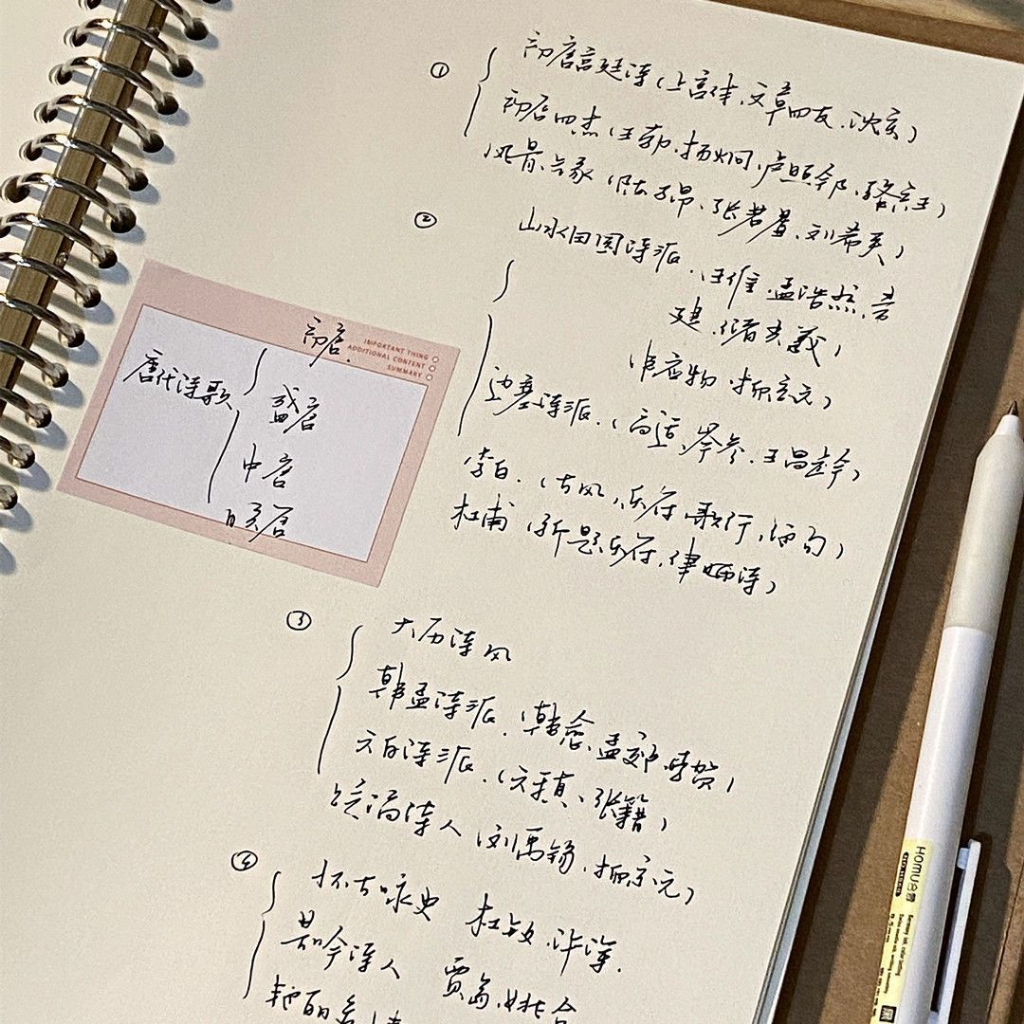 ① 初唐宫廷诗（上官体、文章四友、沈宋）
初唐四杰（王勃、杨炯、卢照邻、骆宾王）
风骨、兴象（陈子昂、张若虚、刘希夷）
② 山水田园诗派（王维、孟浩然、常
建、储光羲）
韦应物、柳宗元）
边塞诗派（高适、岑参、王昌龄）
李白（古风、乐府、歌行、绝句）
杜甫（新题乐府、律诗）
IMPORTANT THING
ADDITIONAL CONTENT
SUMMARY
唐代诗歌
初唐
盛唐
中唐
晚唐
③ 大历诗风
韩孟诗派（韩愈、孟郊、李贺）
元白诗派（元稹、张籍）
诗人（刘禹锡、柳宗元）
④ 怀古咏史 杜牧、许浑
苦吟诗人 贾岛、姚合
艳丽
HOMU